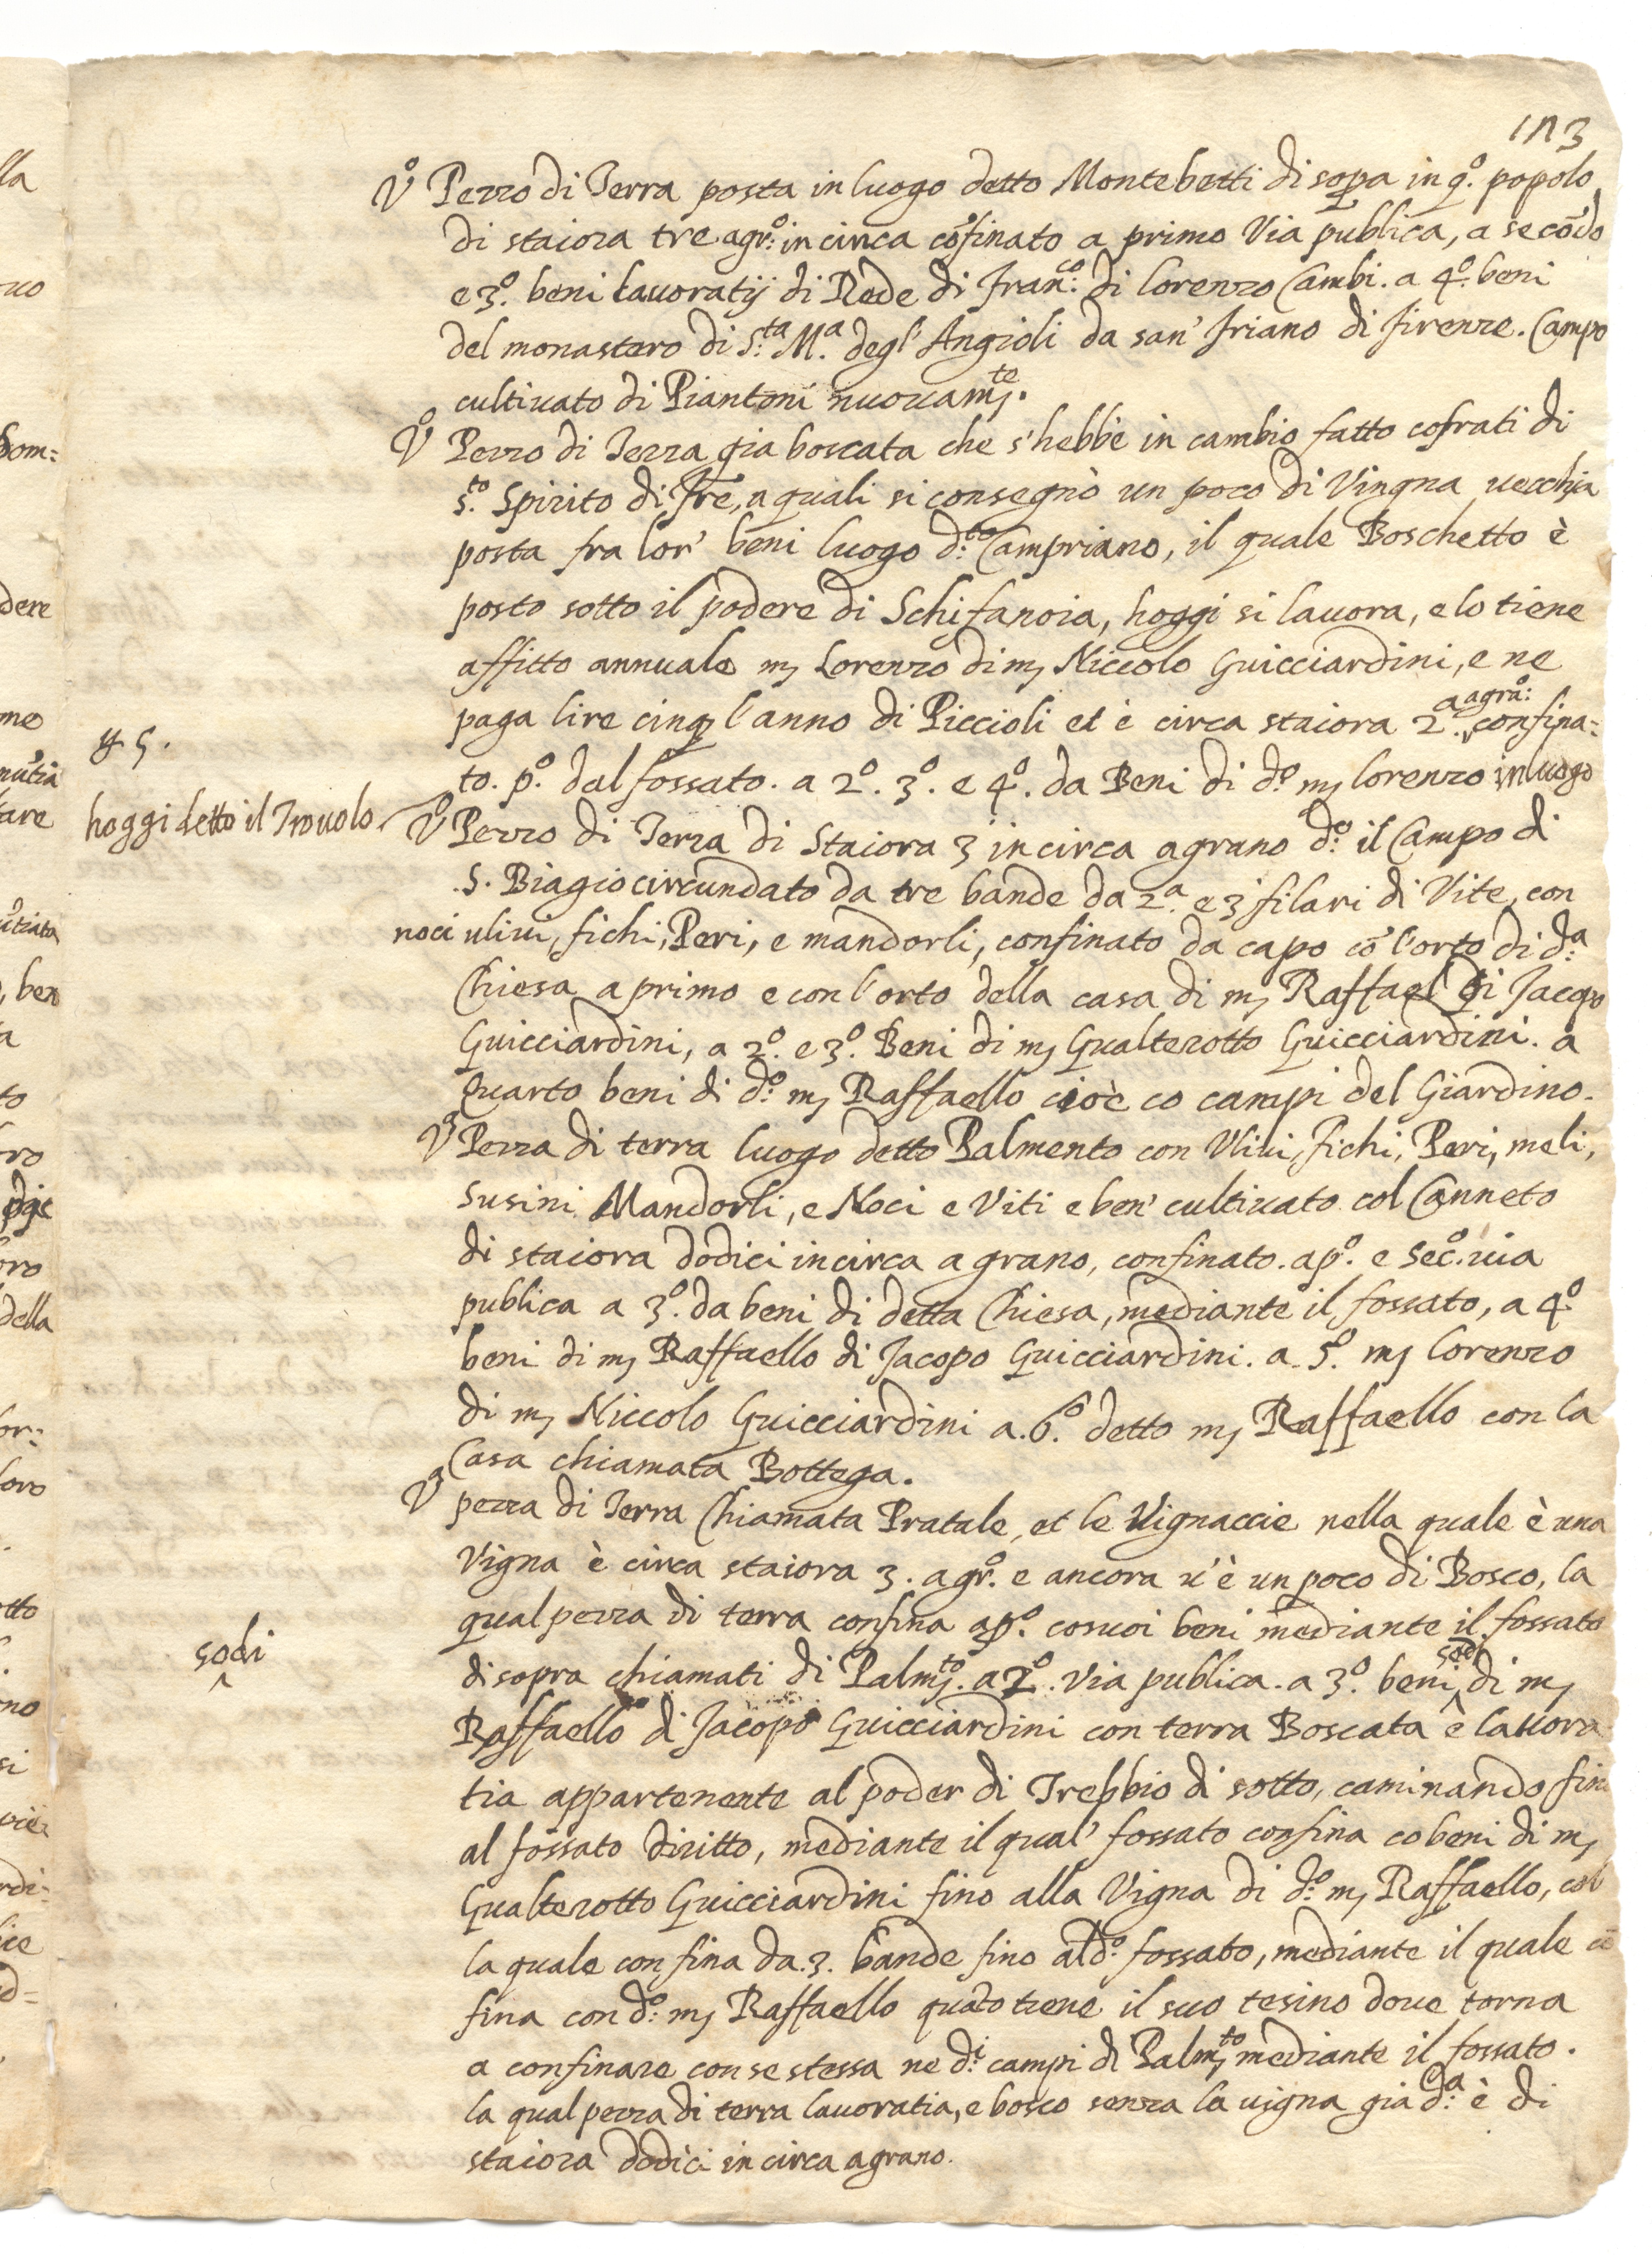 113
Vº Pezzo di Terra posta in luogo detto Montebetti disopa in qº. popolo
di staiora tre agrº: in circa cõfinato a primo Via publica, a secõdo
e 3º. beni lauoratij di Rede di Franco: di Lorenzo Cambi. a 4º. beni
del monastero di S:ta M.a degl' Angioli da san' Friano di Firenze. Campo
cultiuato di Piantoni nuouamte.
Vº Pezzo di Terra gia boscata che s'hebbe in cambio fatto cofrati di
S.to Spirito di Fre, a quali si consegnò un poco di Vingna uecchia
posta fra lor' beni luogo d:to Campriano, il quale Boschetto è
posto sotto il podere di Schifanoia, hoggi si lauora, e lo tiene
affitto annuale mj Lorenzo di mj Niccolo Guicciardini, e ne
paga lire cinq l'anno di Piccioli et è circa staiora 2.a agrã: confina=
to. pº. dal fossato. a 2º. 3º. e 4º. da Beni di dº mj Lorenzo in luogo
hoggi detto il Trouolo.
Vº Pezzo di Terra di Staiora 3 in circa agrano dº: il Campo di
.S. Biagio circundato da tre bande da 2.a e 3 filari di Vite, con
noci uliui, fichi, Peri, e mandorli, confinato da capo cõ l'orto di d:a
Chiesa a primo e con l'orto della casa di mj Raffael di Jacopo
Guicciardini, a 2º. e 3º. Beni di mj Gualterotto Guicciardini. a
Quarto beni di dº: mj Raffaello cioè co campi del Giardino.
Va Pezza di terra luogo detto Palmento con Vliui, fichi, Peri, meli,
Susini Mandorli, e Noci e Viti e ben' cultiuato col Canneto
di staiora dodici incirca a grano, confinato. apº. e Secº. uia
publica a 3º. da beni di detta Chiesa, mediante il fossato, a 4º.
beni di mj Raffaello di Jacopo Guicciardini. a. 5º. mj Lorenzo
di mj Niccolo Guicciardini a. 6º. detto mj Raffaello con la
Casa chiamata Bottega.
Va pezza di Terra Chiamata Pratale, et le Vignaccie nella quale è una
Vigna è circa staiora 3. agrº. e ancora u'è un poco di Bosco, la
qual pezza di terra confina apº. cosuoi beni mediante il fossato
sodi
di sopra chiamati di Palmto. a 2º. Via publica. a 3º. beni sodi di mj
Raffaello di Jacopo Guicciardini con terra Boscata e lauora
tia appartenente al poder di Trebbio di sotto, caminando fin
al fossato diritto, mediante il qual' fossato confina cobeni di mj
Gualterotto Guicciardini fino alla Vigna di dº: mj Raffaello, col
la quale confina da .3. bande fino al dº: fossato, mediante il quale cõ
fina con dº: mj Raffaello quãto tiene il suo tesino doue torna
a confinare con se stessa ne d:i campi di Palmto mediante il fossato.
la qual pezza di terra lauoratia, e bosco senza la uigna gia d:a è di
staiora dodici in circa agrano.